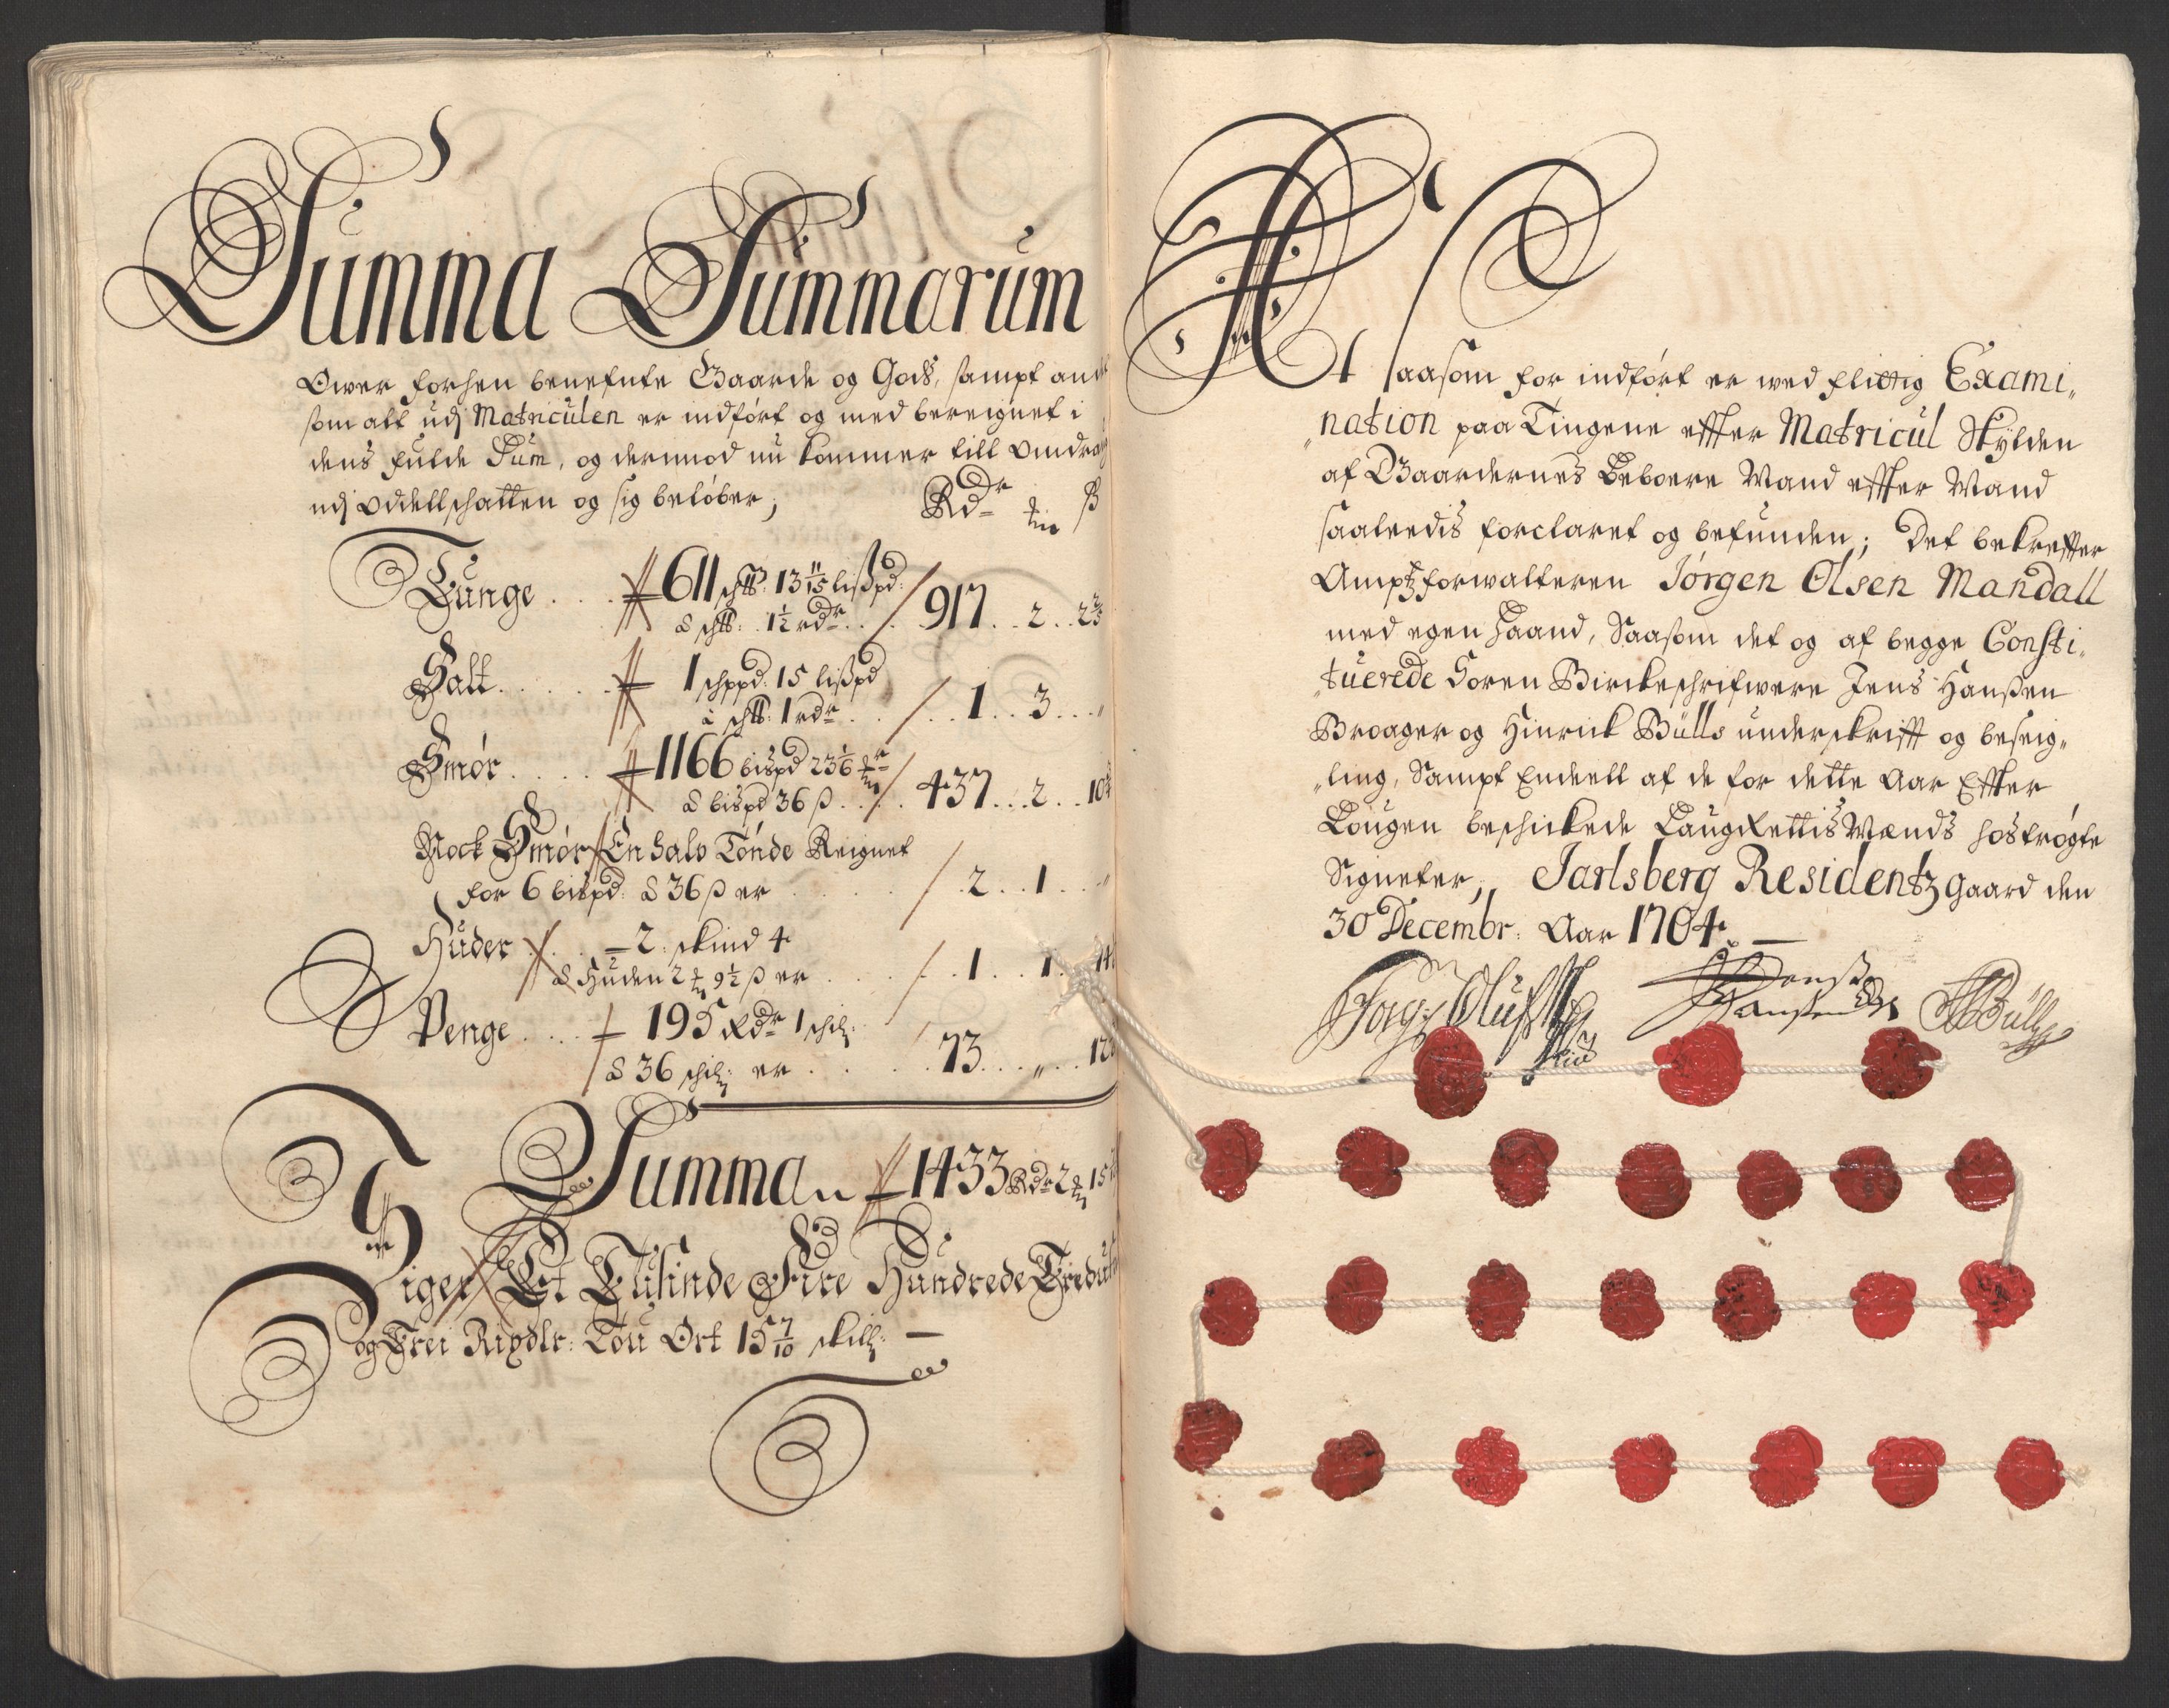 Summa Summarum
Ower forhen benefnte Gaarde og Gods, sampt andet
som alt udj Matriculen er indført og med bereignet i
dens fulde Sum, og dermod nu kommer till Omdrag
udj Odellschatten og sig beløber;
Rdr ß
Tunge .... 611 sch℔: 13 11/15 lißpd:
à sch℔: 1½ rdr .. / 917 .. 2 .. 2 2/5
Salt ...... 1 schppd: 15 lißpd
à sch℔: 1 rdr .. / .. 1 .. 3 .. "
Smør ..... 1166 bispd 23 1/6
à bispd 36 ß .. / 437 .. 2 .. 10
Nock Smør En halv Tønde Reignet
for 6 bispd: à 36 ß er .... / 2 .. 1 .. "
Huder .. 2: skind 4
à Huden 2 9½ ß er .... / 1 .. 1 ..
Penge .... 195 Rdr 1 schil:
à 36 schil: er .... 73 .. " .. 12
Summa 1433 Rdr 2 15
Siger Et Tusinde Fire Hundrede Tredive
og Trei Rixdlr: Tou Ort 15 7/10 skill: —
At saasom for indført er wed flittig Exami„
„nation paa Tingene effter Matricul Skylden
af Gaardernes Beboere Mand effter Mand
saaleedis forclaret og befunden; Det bekreffter
Amptz forwalteren Jørgen Olsen Mandall
med egen Haand, Saasom det og af begge Consti„
„tuerede Soren Birckeschrifwere Jens Hanßen
Broager og Hinrick Bülls underskrifft og beseig„
„ling, Sampt Endeell af de for dette Aar Effter
Lougen beschickede LaugRettis Mænds hostrøgte
Signeter, Jarlsberg Residentz gaard den
30 Decembr: Aar 1704. —
Jørg: Olufß Jens Hansen HBülls